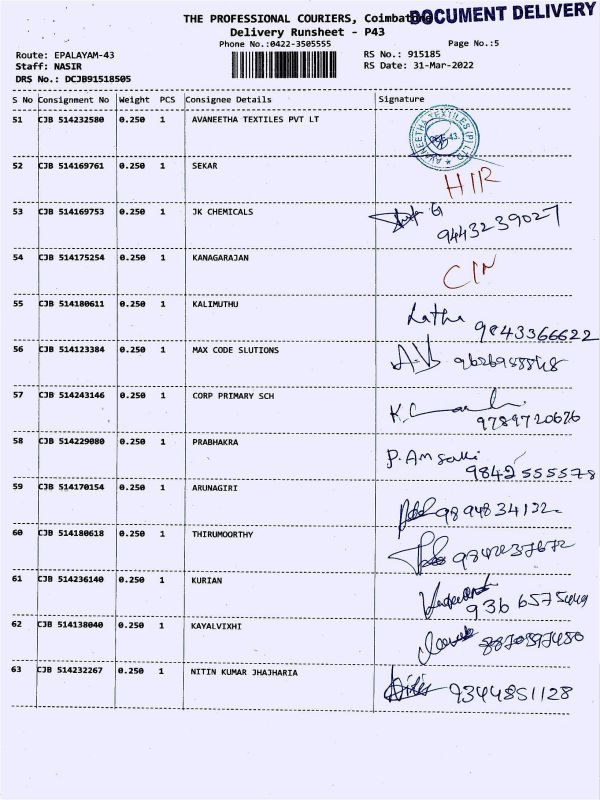 THE PROFESSIONAL COURIERS, Coimbatore
DOCUMENT DELIVERY
Delivery Runsheet - P43
Phone No.:0422-3505555 Page No.:5
Route: EPALAYAM-43 RS No.: 915185
Staff: NASIR RS Date: 31-Mar-2022
DRS No.: DCJB91518505
S No Consignment No Weight PCS Consignee Details Signature
51 CJB 514232580 0.250 1 AVANEETHA TEXTILES PVT LT AVANEETHA TEXTILES (P) LTD
52 CJB 514169761 0.250 1 SEKAR
53 CJB 514169753 0.250 1 JK CHEMICALS 9443239027
54 CJB 514175254 0.250 1 KANAGARAJAN
55 CJB 514180611 0.250 1 KALIMUTHU Latha 9843366622
56 CJB 514123384 0.250 1 MAX CODE SLUTIONS
57 CJB 514243146 0.250 1 CORP PRIMARY SCH 9789720676
58 CJB 514229080 0.250 1 PRABHAKRA 9842555578
59 CJB 514170154 0.250 1 ARUNAGIRI 9894834132
60 CJB 514180618 0.250 1 THIRUMOORTHY 9842237672
61 CJB 514236140 0.250 1 KURIAN
62 CJB 514138040 0.250 1 KAYALVIXHI
63 CJB 514232267 0.250 1 NITIN KUMAR JHAJHARIA Nitin 9344851128